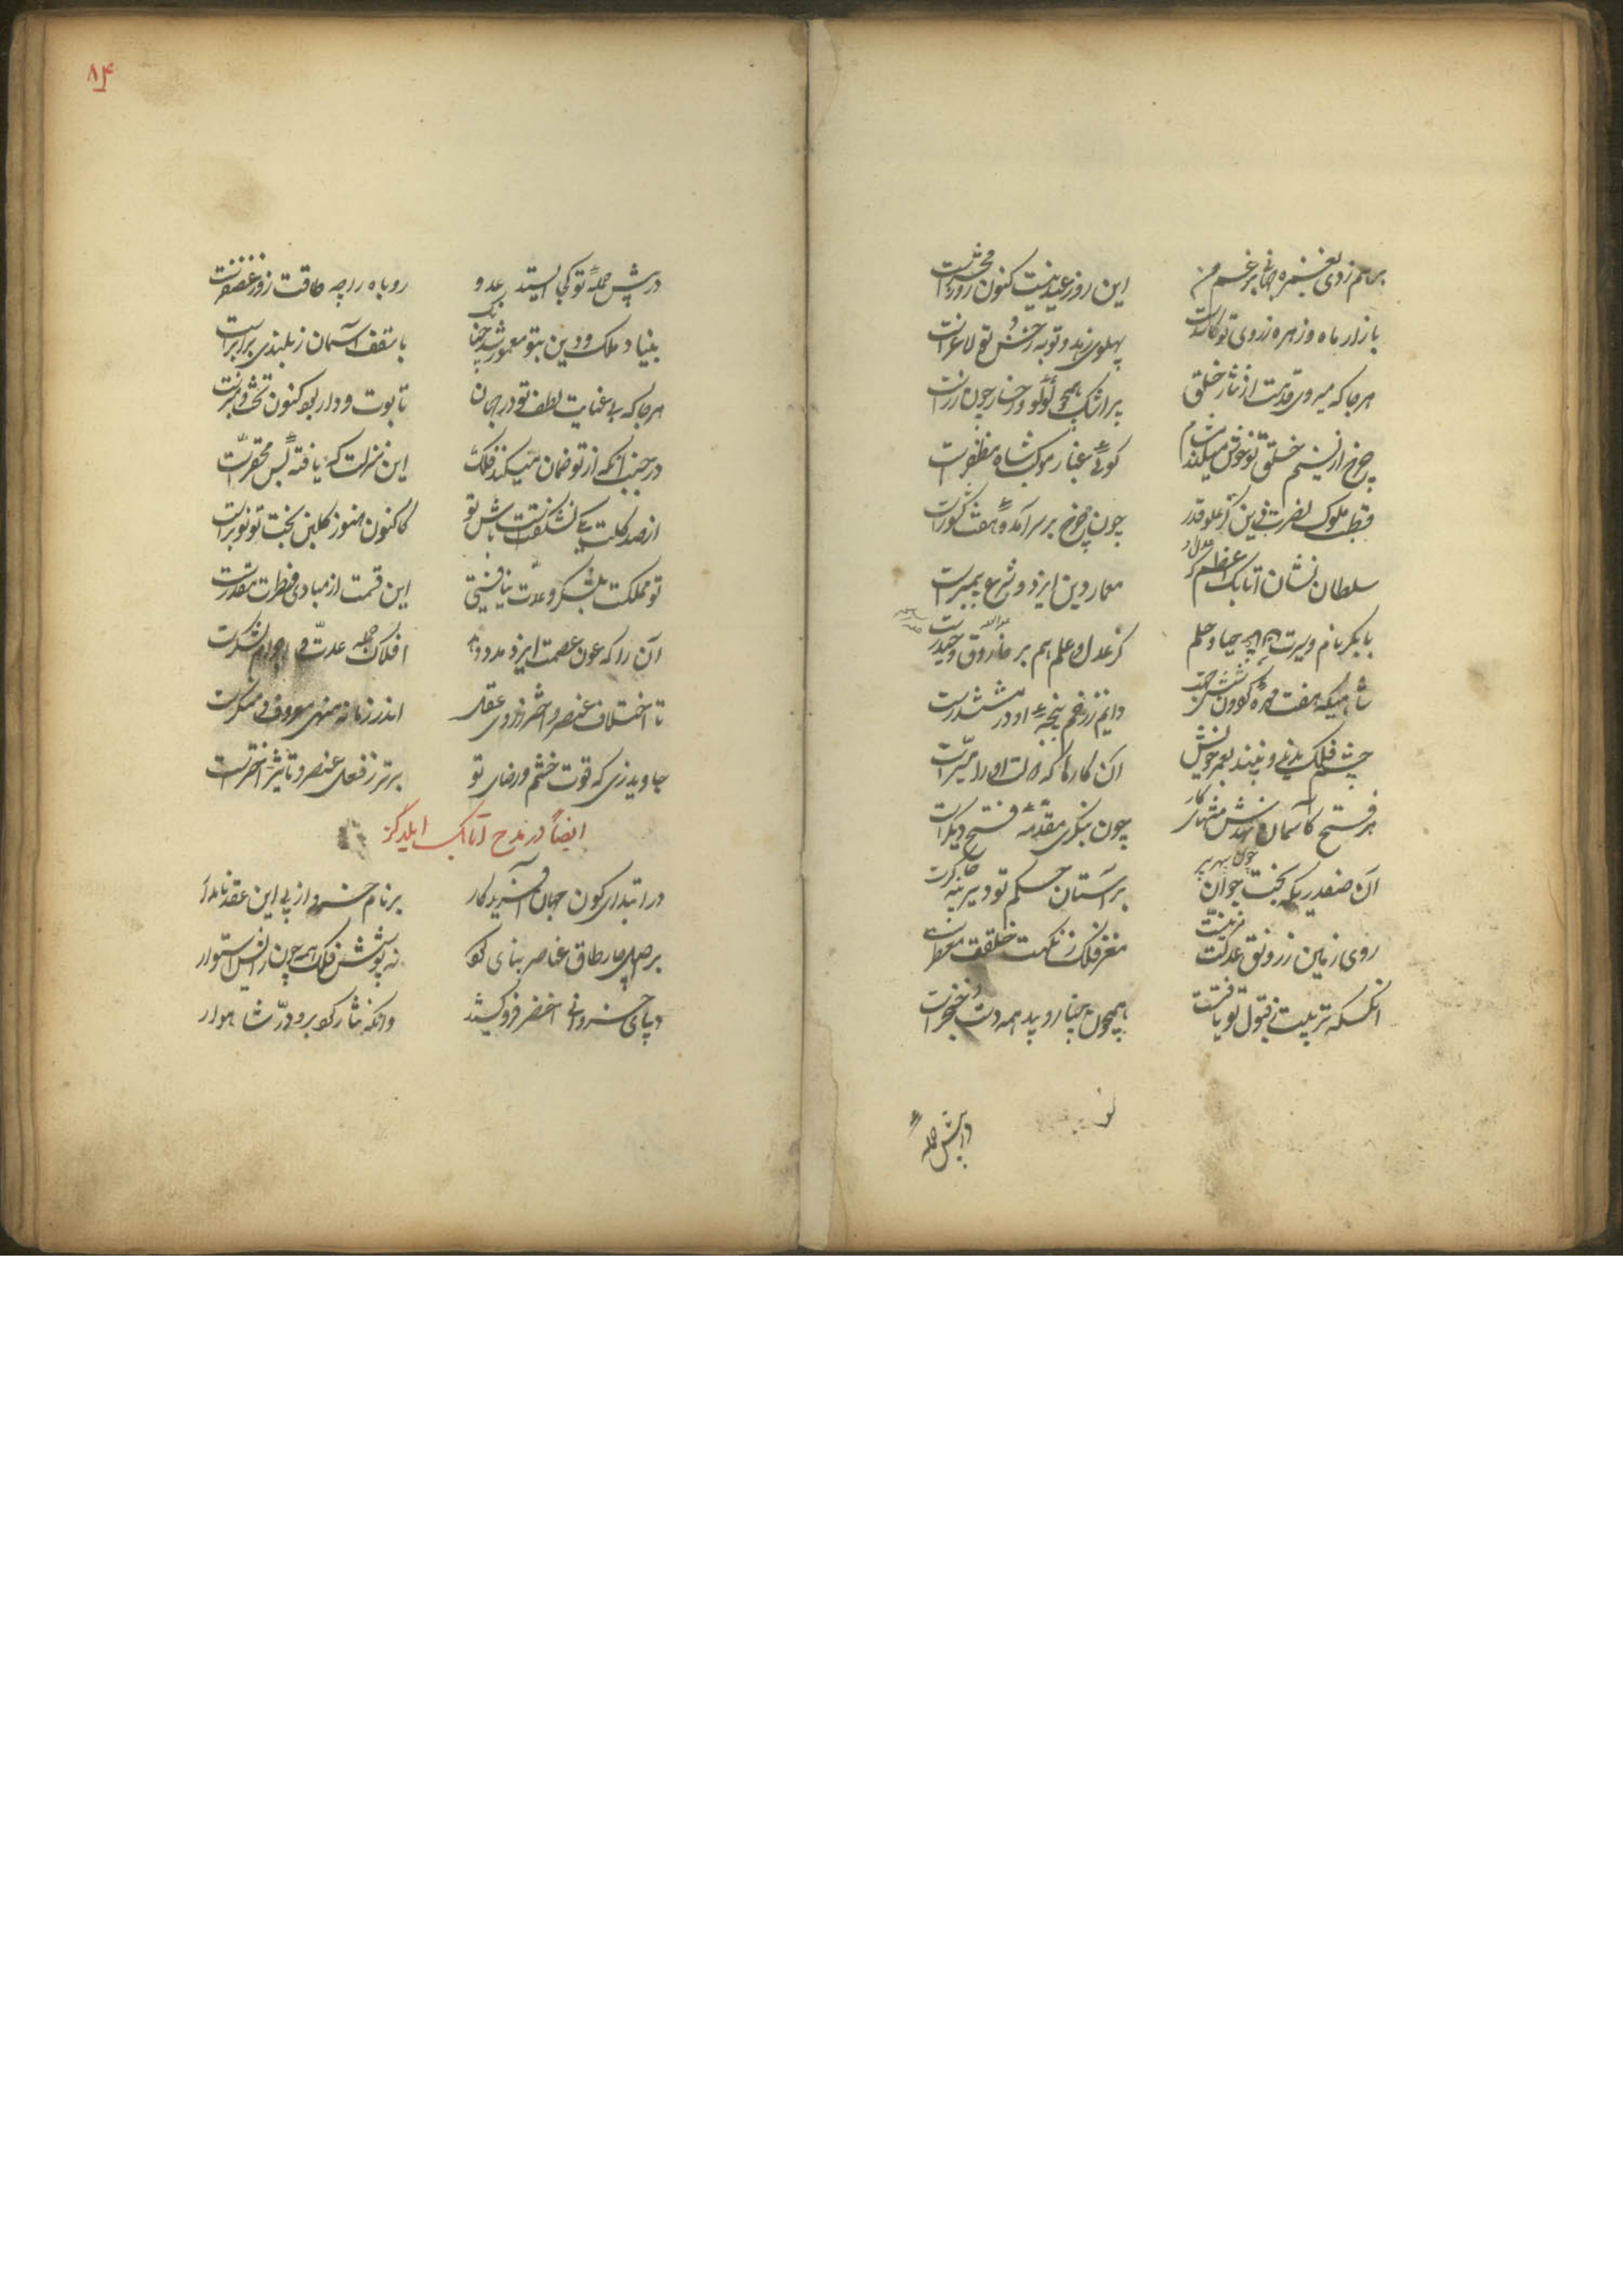 برهم زدی بغمزه جهانی برغم من این روز عید نیست کنون روز محشرست
بازار ماه و زهره ز روی تو کاسدست پهلوی زهد و توبه ز خشم تو لاغرست
هرجا که میروی قدمت از نثار خلق پر اشک همچو لؤلؤ و رخسار چون زرست
چرخ از نسیم خلق تو خوش میکند مشام گوئی غبار موکب شاه مظفرست
قطب ملوک نصرت دین کز علو قدر چون چرخ بر سر آمده هفت کشورست
سلطان نشان اتابک اعظم که عدل او معمار دین ایزد و شرع پیمبرست
بابکر نام و سیرت حیا و حلم کز عدل و علم هم بر فاروق و حیدرست
شاهیکه هفت مهره گردون ز شش جهت دایم ز زخم پنجه او در مششدرست
چشم فلک ندید و نبیند بعمر خویش آن کارها که دولت او را میسرست
هر فتح کاسمان نهدش منتهای کار چون بنگری مقدمه فتح دیگرست
آن صفدریکه بخت جوان چون سپهر پیر بر آستان حکم تو دیرینه چاکرست
روی زمین ز رونق عدلت مزینست مغز فلک ز نکهت خلقت معطرست
آنکسکه تربیت ز قبول تو یافتست همچون چنار روید همه دست خنجرست
در پیش حمله
۸۴
در پیش حمله تو کجا ایستد عدو روباه را چه طاقت زور غضنفرست
بنیاد ملک و دین بتو معمور شد چنانک با سقف آسمان ز بلندی برابرست
هرجا که بی عنایت لطف تو در جهان تابوت و دار بود کنون تخت و منبرست
در جنب آنکه از تو ضمان میکند فلک این منزلت که یافته بس محقرست
از صد گلت یکی نشکفتست باش تو کاکنون هنوز گلبن بخت تو نوبرست
تو مملکت بلشکر و عدت نیافتی این قسمت از مبادی فطرت مقدرست
آن را که عون عصمت ایزد مدد دهد افلاک جمله عدت و اجرام لشکرست
تا اختلاف عنصر و اختر ز روی عقل اندر زمانه منهی معروف و منکرست
جاوید زی که قوت خشم و رضای تو برتر ز فعل عنصر و تاثیر اخترست
ایضاً در مدح اتابک ایلدگز
در ابتدای کون جهان آفریدگار بر نام خسرو از پی این عقد نامدار
بر اصل چار طاق عناصر بنای کو نه پوشش فلک همه چون زانس استوار
دیبای خسروانی اخضر فرو کشید وانگه نثار کرد برو درّ شاهوار